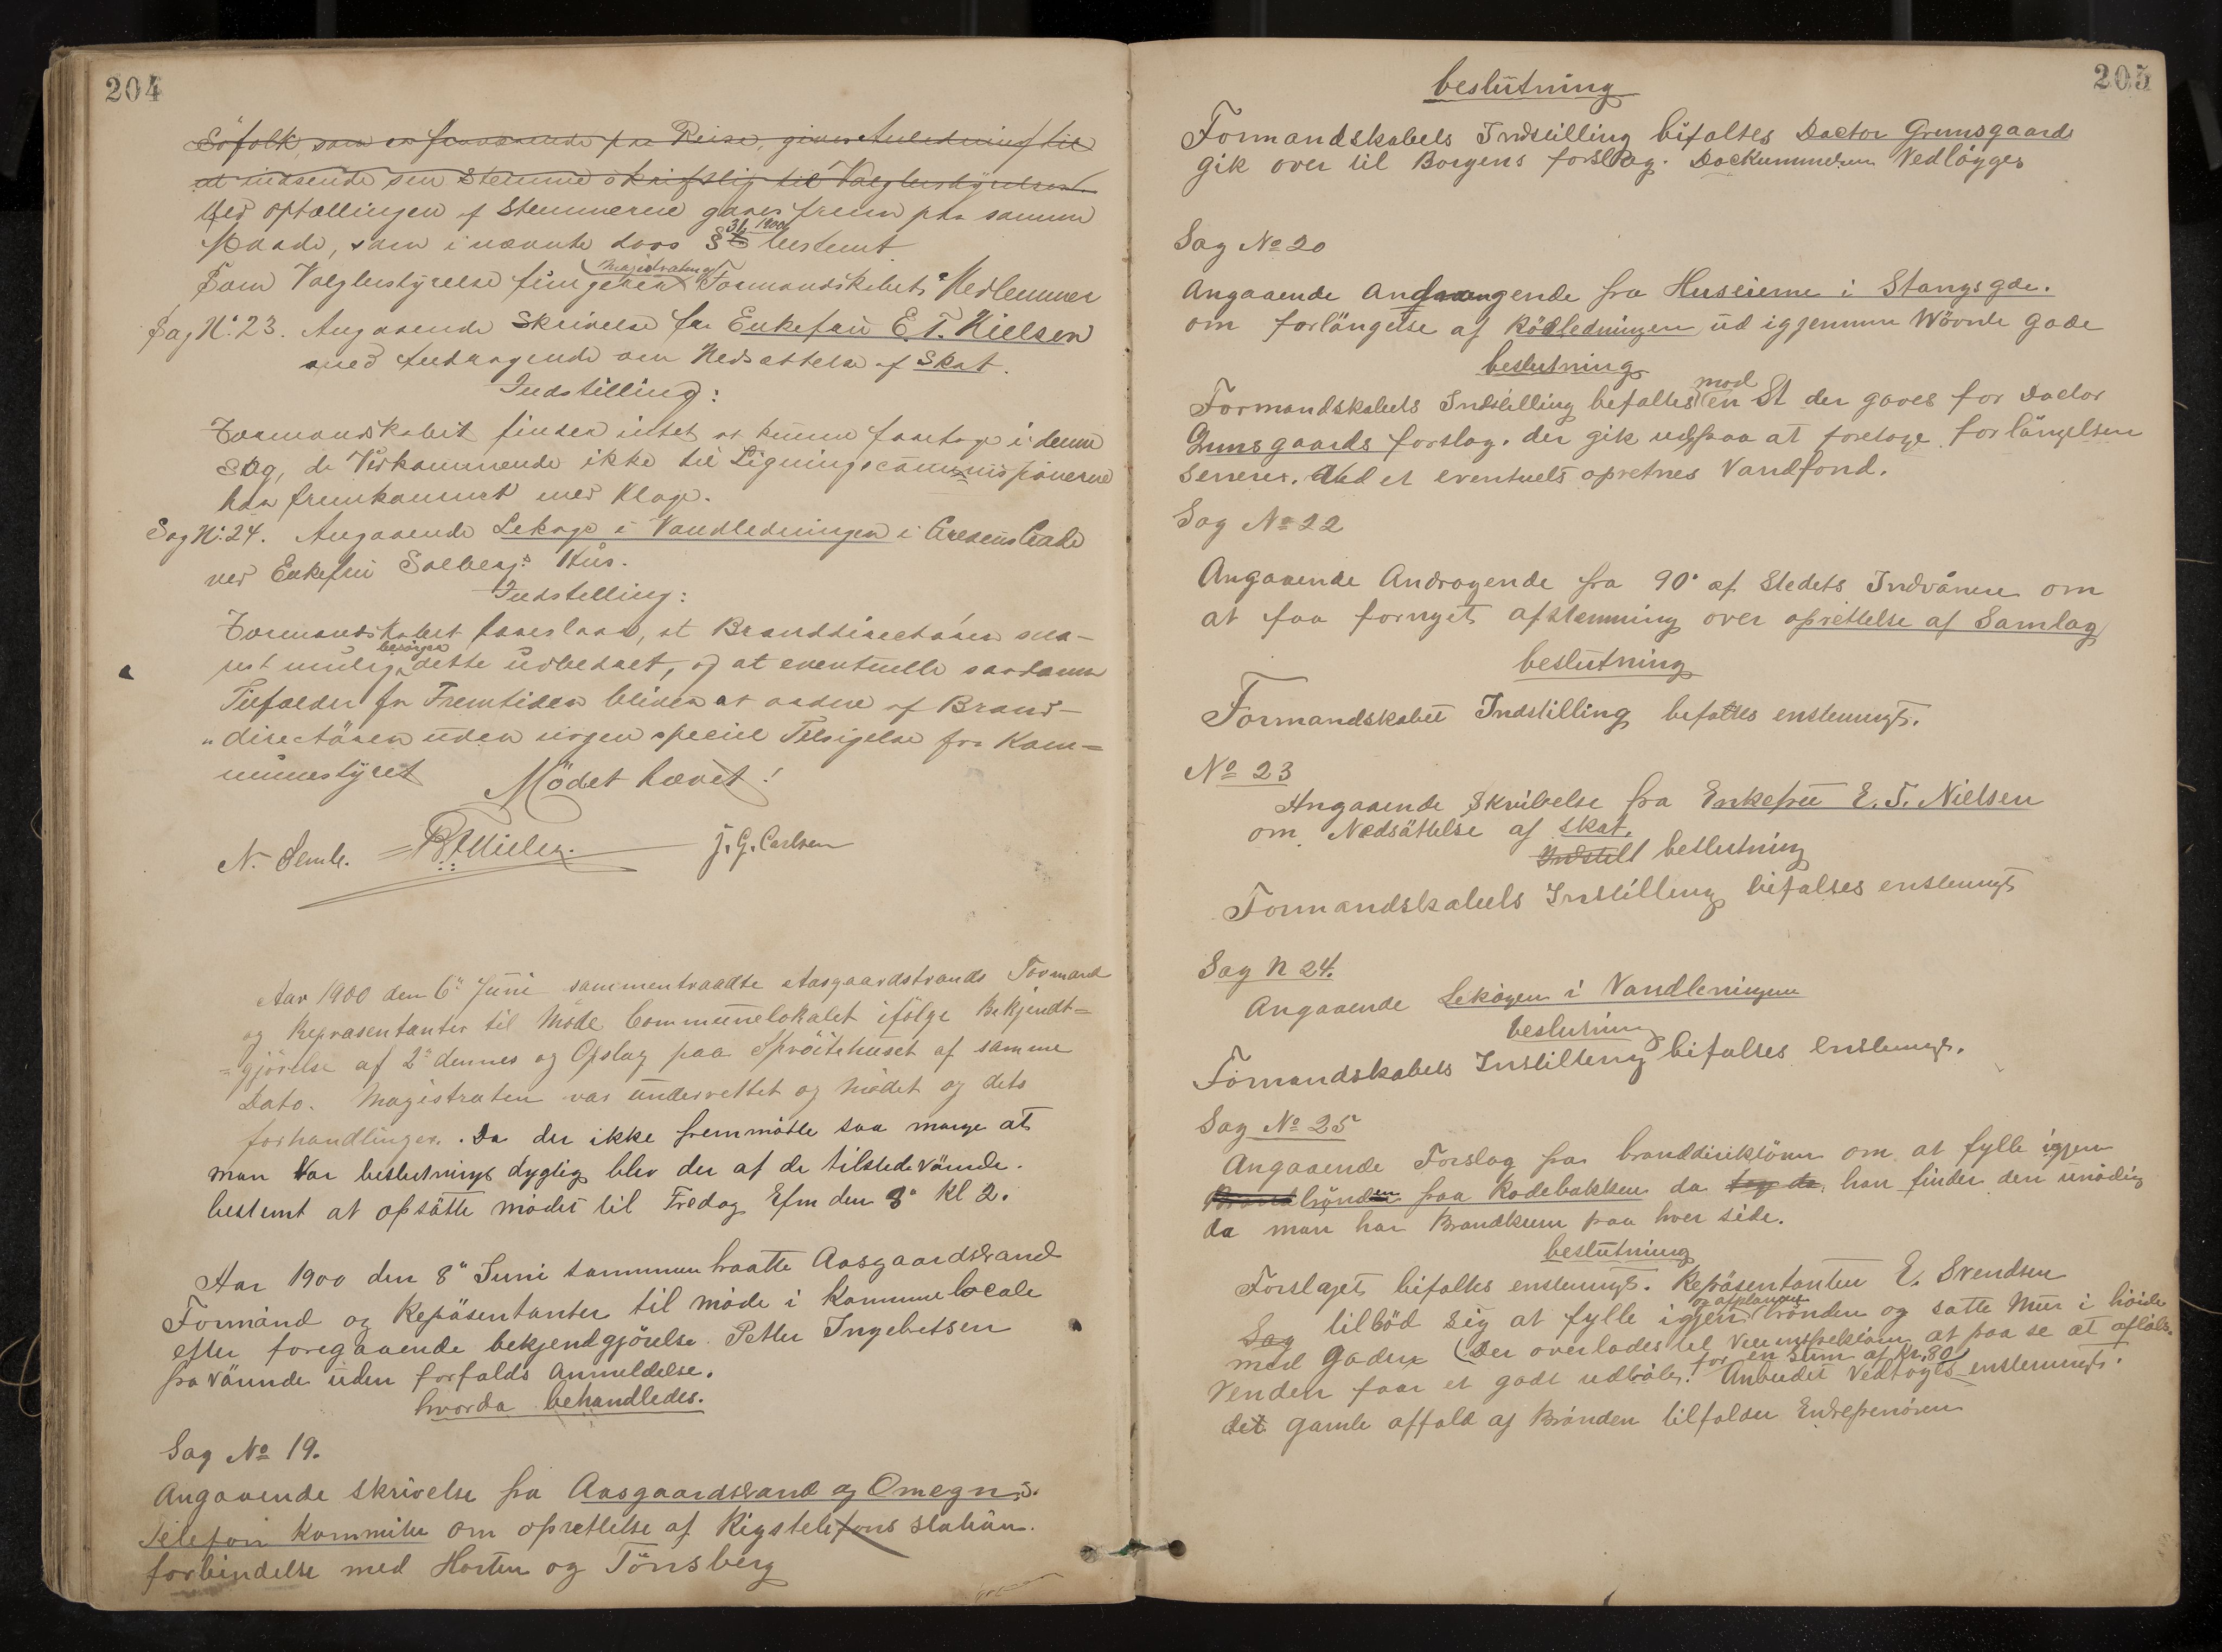 204
Söfolk, som er fraværende paa Reise, gives Anledning til
at indsende sin Stemme skriftlig til Valgbestyrelsen.
Ved Optællingen af Stemmerne gaaes frem paa samme
Maade, som i nævnte Lovs § 31 1900 bestemt.
Som Valgbestyrelse fungerer Magistraten Formandskabets Medlemmer
Sag No. 23. Angaaende Skrivelse fra Enkefru E. T. Nielsen
med Andragende om Nedsættelse af Skat.
Indstilling:
Formandskabet finder intet at kunne foretage i denne
Sag, da Vedkommende ikke til Ligningscommissionerne
har fremkommet med Klage.
Sag No. 24. Angaaende Lekage i Vandledningen i Grevens Gade
ved Enkefru Solbergs Hus.
Indstilling:
Formandskabet foreslaar, at Branddirectören sna-
rest mulig besörger dette udbedret, og at eventuelle saadanne
Tilfælder for Fremtiden bliver at ordne af Brand-
"directören uden nogen speciel Tilsigelse fra Kom=
munestyret Mödet hævet!
N. Semb. J. G. Carlsen
Aar 1900 den 6" Juni sammentraadte Aasgaardstrands Formand
og Repræsentanter til Möde Communelokalet ifölge Bekjendt=
=gjörelse af 2" dennes og Opslag paa Spröitehuset af samme
Dato. Magistraten var underrettet og Mödet og dets
forhandlinger. Da der ikke fremmötte saa mange at
man Var beslutnings dygtig blev der af de tilstedeværnde.
bestemt at opsätte mödet til Fredag Efm den 8" Kl 2.
Aar 1900 den 8" Juni sammen traatte Aasgaardstrand
Formand og Repäsentanter til möde i Kommunelocale
efter foregaaende bekjendgjörelse. Petter Ingebretsen
fra värnde uden forfalds Anmeldelse.
hvorda behandledes.
Sag No 19.
Angaaende skrivelse fra Aasgaardstrand og Omegns.
Telefon Kommite om oprettelse af Rigstelefons station.
forbindelse med Horten og Tönsberg
205
beslutning
Formandskabets Indstilling bifaltes Doctor Grunsgaards
gik over til Borgens forslag. Dockummdern Vedlägges
Sag No 20
Angaaende Andragende fra Huseierne i Stangsgde.
om forlängelse af Rödledningen ud igjennem Wövnde gade
beslutning
Formandskabets Indstilling befaltes mod en St der gaves for Doctor
Grunsgaards forslag. der gik udpaa at foretage forlängelsen
senerer. Ved et eventuelt opretnes Vandfond.
Sag No 22
Angaaende Andragende fra 90" af Stedets Indvånere om
at faa fornyet afstemning over oprettelse af Samlag
beslutning
Formandskabet Indstilling befaltes enstemigt.
No 23
Angaaende Skribelse fra Enkefru E. T. Nielsen
om Nedsättelse af skat.
Indstill beslutning
Formandskabets Instilling bifaltes enstemigt
Sag N 24.
Angaaende Lekagen i Vandleningen
beslutning
Formandskabets Instilling bifaltes enstemigt.
Sag No 25
Angaaende Forslag fra branddirektören om at fylle igjen
Brand brönden paa Rodebakken da han finder den unödig
da man har Brandkum paa hver side.
beslutning
Forslaget bifaltes enstemigt. Repäsentanten E. Svendsen
Sag tilböd sig at fylle igjen og afplanere brönden og satte Mur i höide
med Gaden (Der overlades til at paa se at
Venden faar et godt for en Sum af Kr. 80 Anbudet Vedtoges enstemigt.
det gamle affald af Brönden tilfalder Entrepenören